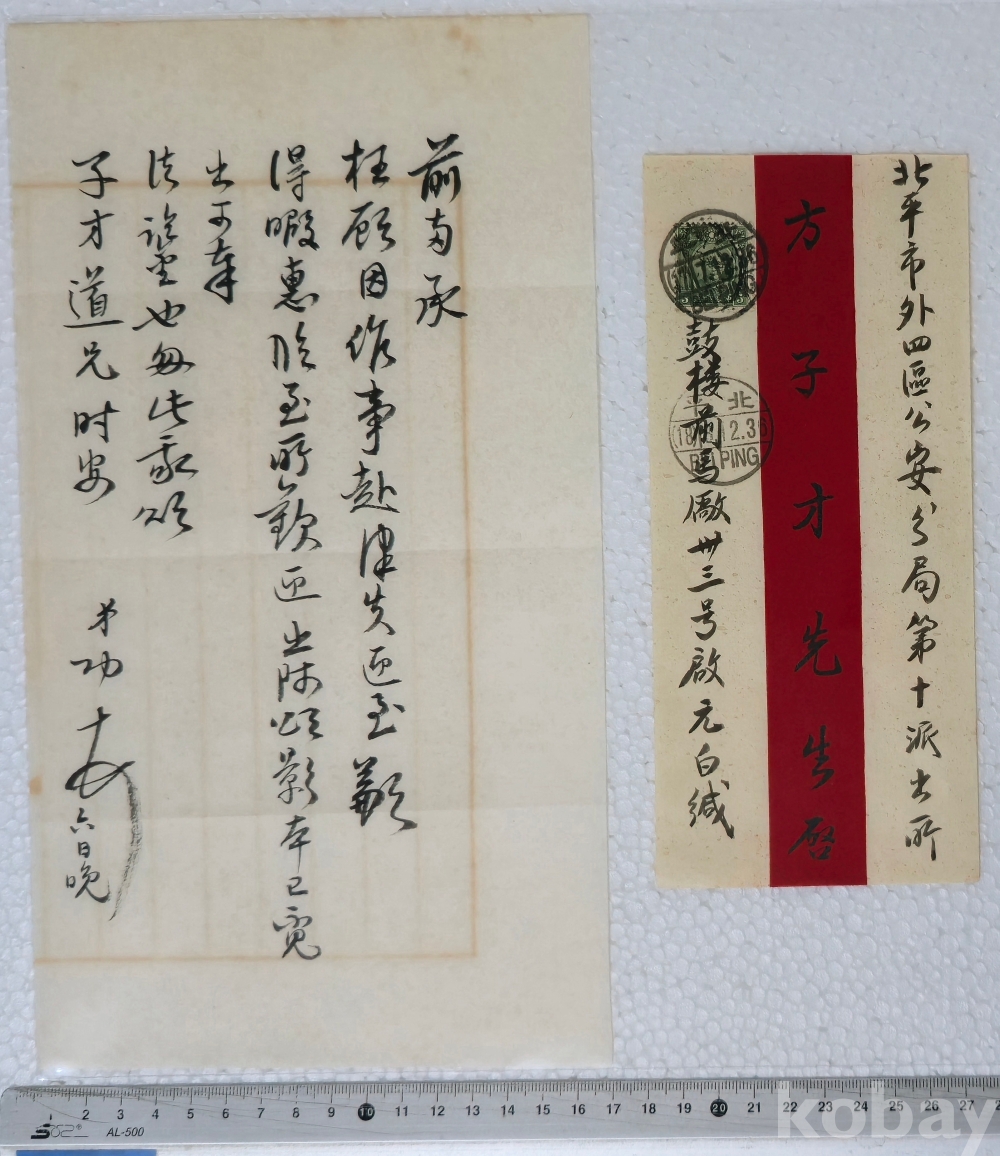 北平市外四區公安分局第十派出所
方子才先生启
鼓楼前馬廠卅三号啟元白缄
平 北
12.36
PING
前承
枉顾因作事赴津失迎至歉
得暇惠临至所歡迎出師頌影本已覓
出可奉
法鉴也匆此敬颂
子才道兄时安
弟功
六日晚
1 2 3 4 5 6 7 8 9 10 11 12 13 14 15 16 17 18 19 20 21 22 23 24 25 26 27
AL-500
kobay